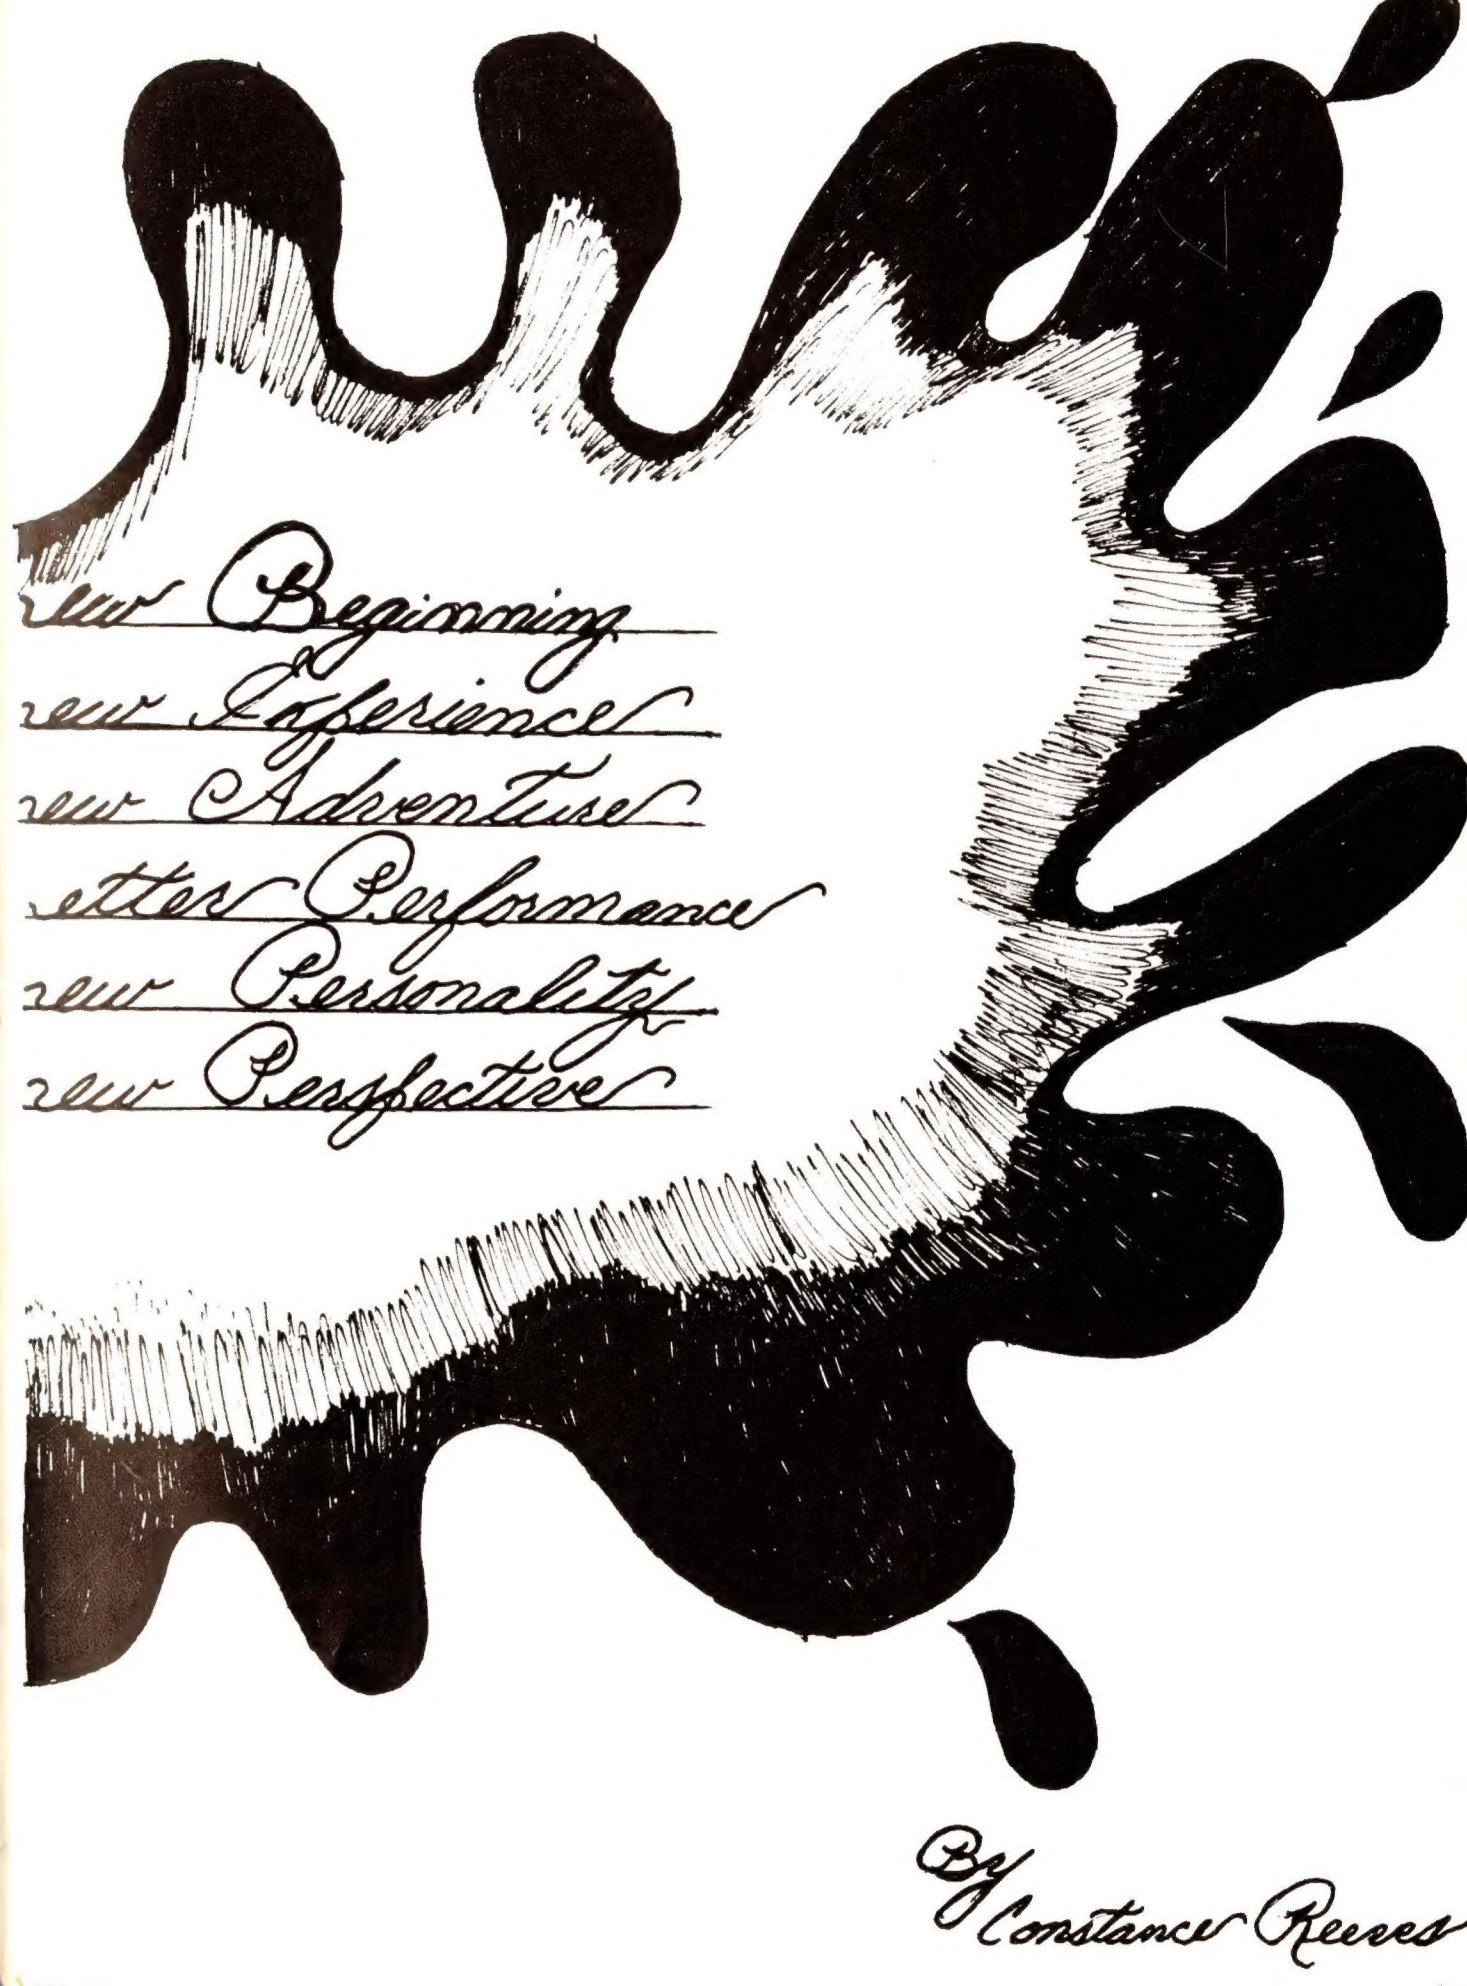 new Beginning
new Experience
new Adventure
etter Performance
new Personality
new Perspective
By
Constance Reeves